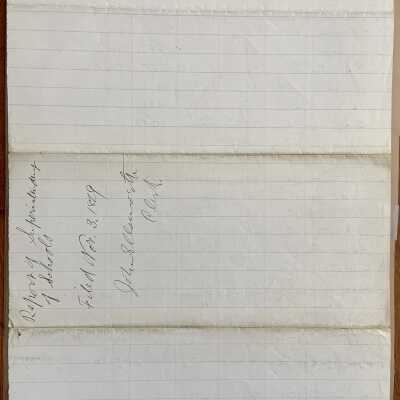 Report of Superintendent
of Schools
Filed Nov. 3, 1879
John S
Clerk